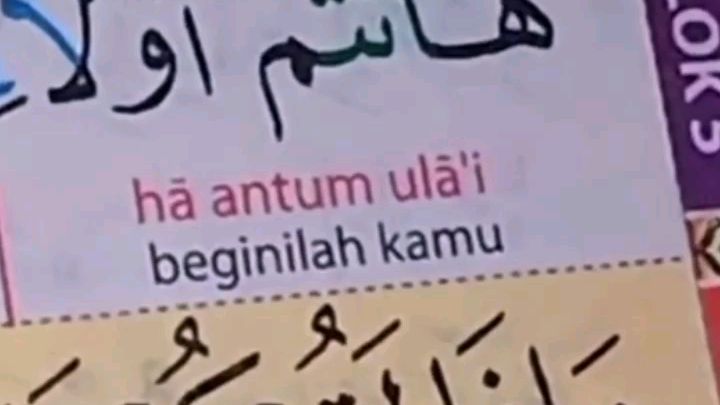 هانتم اولاء
hā antum ulā'i
beginilah kamu
LOK 5